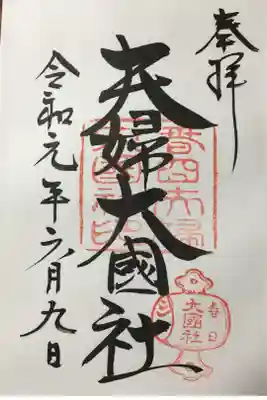 奉拝
夫婦大國社
令和元年六月九日
春日
大國社